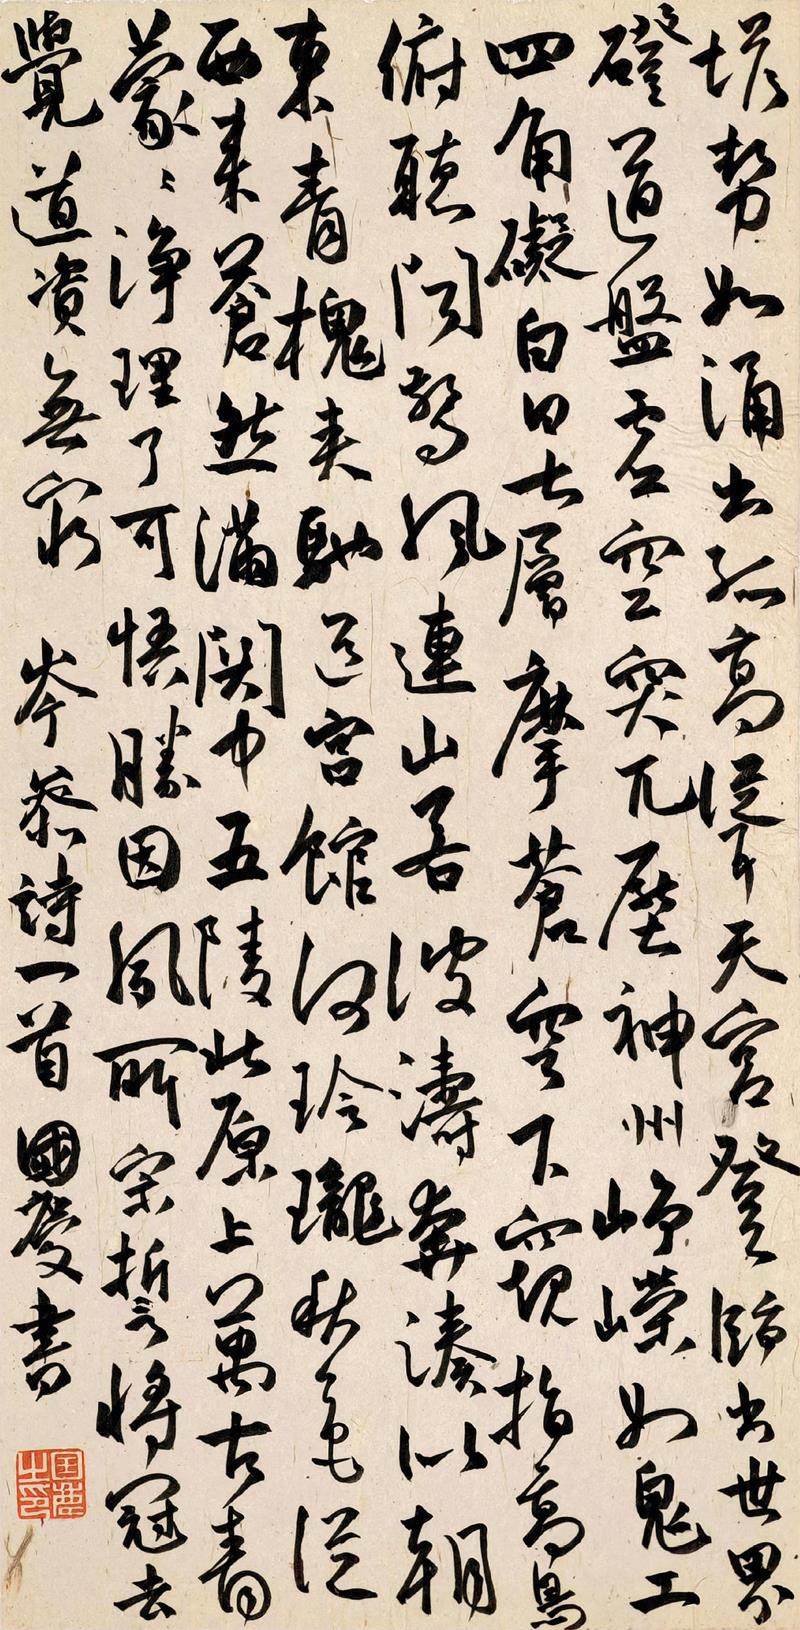 塔勢如涌出孤高聳天宮登臨出世界
磴道盤虛空突兀壓神州崢嶸如鬼工
四角礙白日七層摩蒼穹下窺指高鳥
俯聽聞驚風連山若波濤奔湊似朝
東青槐夾馳道宮館何玲瓏秋色從
西來蒼然滿關中五陵北原上萬古青
蒙〻淨理了可悟勝因夙所宗誓將冠去
覺道資無窮 岑參詩一首 國慶書
国慶之印